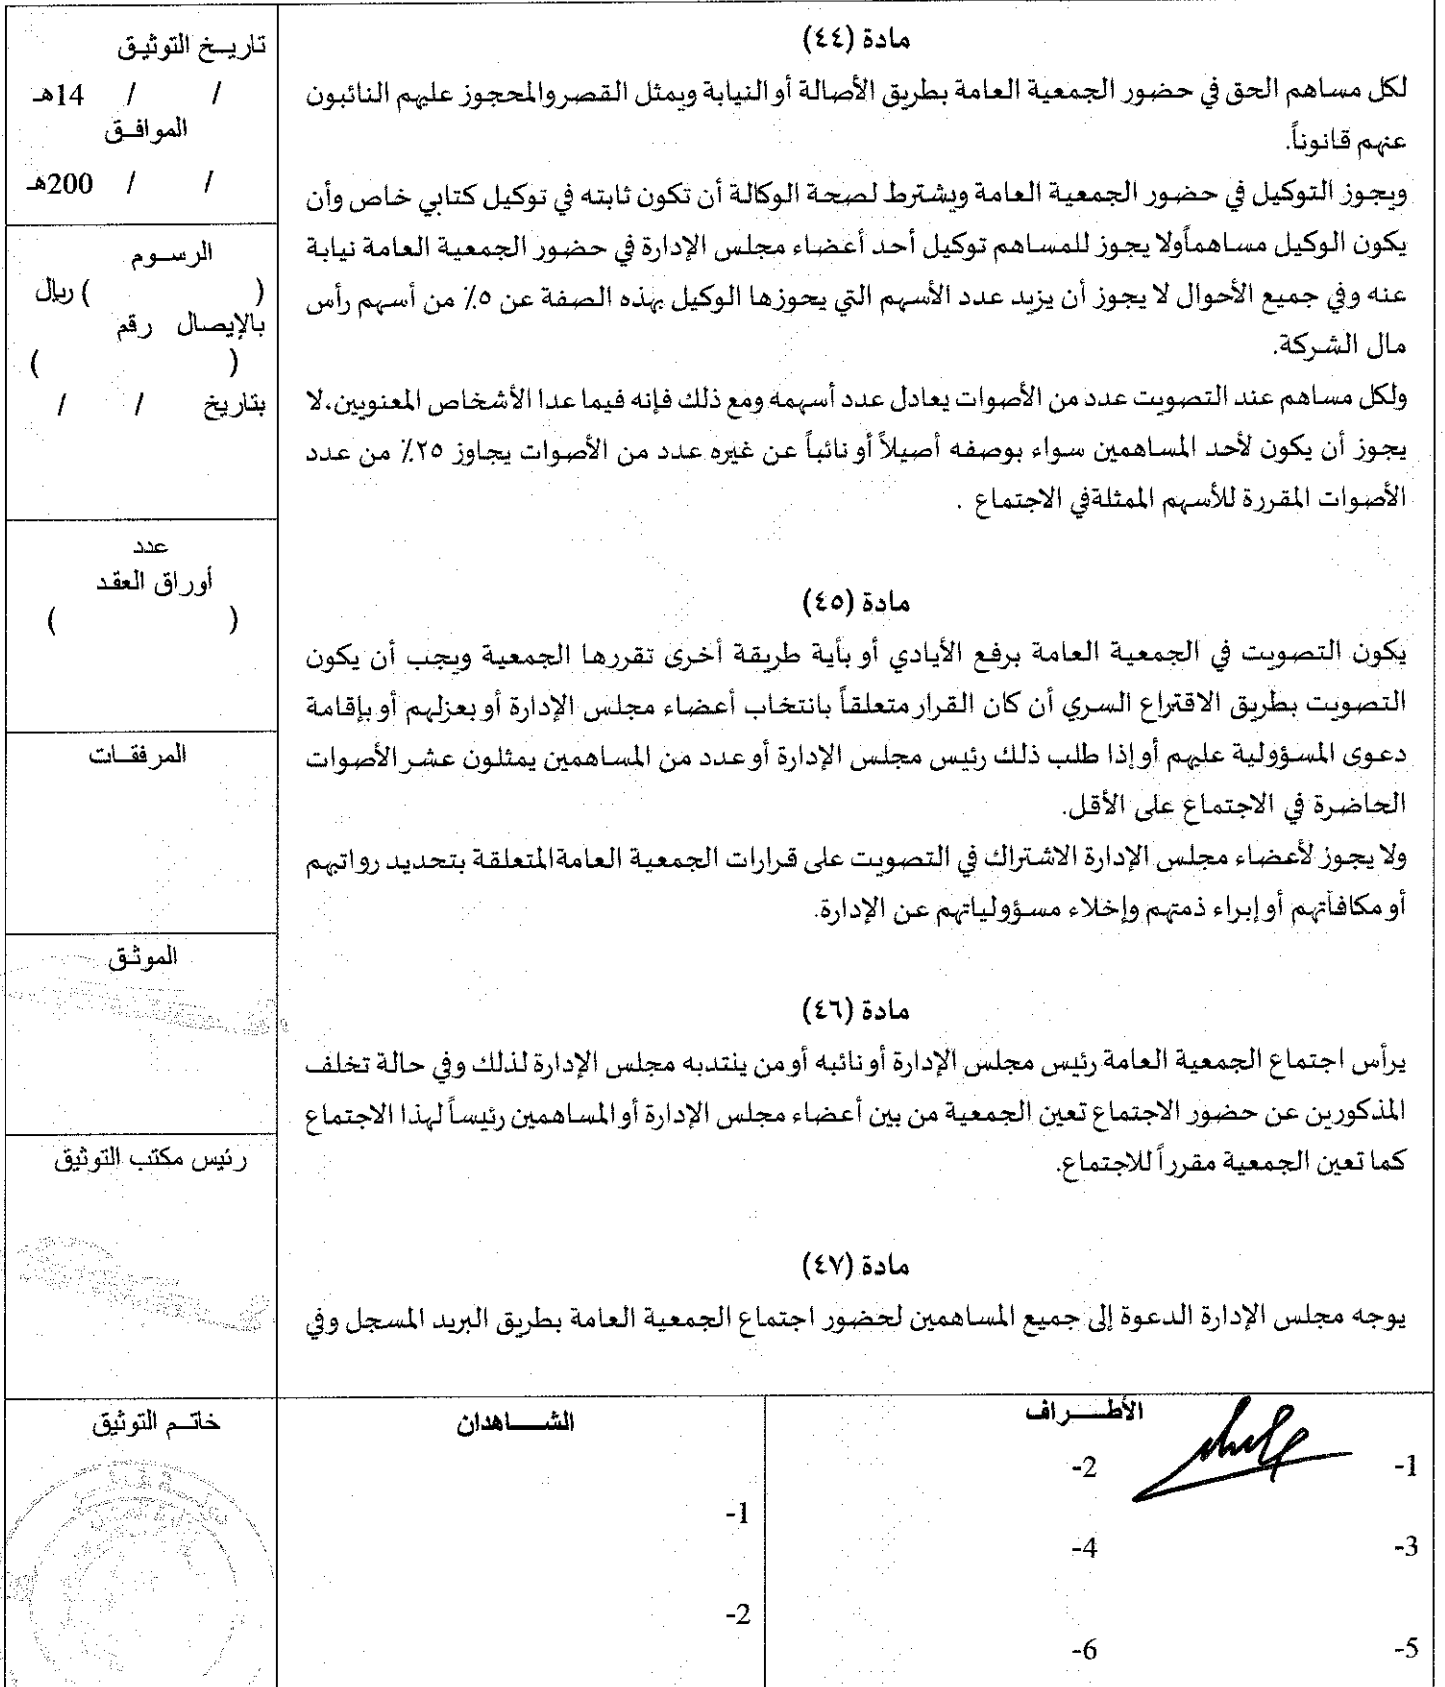 مادة (٤٤)
لكل مساهم الحق في حضور الجمعية العامة بطريق الأصالة أو النيابة ويمثل القصر والمحجوز عليهم النائبون
عنهم قانوناً.
ويجوز التوكيل في حضور الجمعية العامة ويشترط لصحة الوكالة أن تكون ثابته في توكيل كتابي خاص وأن
يكون الوكيل مساهماًولا يجوز للمساهم توكيل أحد أعضاء مجلس الإدارة في حضور الجمعية العامة نيابة
عنه وفي جميع الأحوال لا يجوز أن يزيد عدد الأسهم التي يحوزها الوكيل بهذه الصفة عن ٥٪ من أسهم رأس
مال الشركة.
ولكل مساهم عند التصويت عدد من الأصوات يعادل عدد أسهمه ومع ذلك فإنه فيما عدا الأشخاص المعنويين،لا
يجوز أن يكون لأحد المساهمين سواء بوصفه أصيلاً أو نائباً عن غيره عدد من الأصوات يجاوز ٢٥٪ من عدد
الأصوات المقررة للأسهم الممثلةفي الاجتماع .
مادة (٤٥)
يكون التصويت في الجمعية العامة برفع الأيادي أو بأية طريقة أخرى تقررها الجمعية ويجب أن يكون
التصويت بطريق الاقتراع السري أن كان القرار متعلقاً بانتخاب أعضاء مجلس الإدارة أو بعزلهم أو بإقامة
دعوى المسؤولية عليهم أو إذا طلب ذلك رئيس مجلس الإدارة أو عدد من المساهمين يمثلون عشر الأصوات
الحاضرة في الاجتماع على الأقل.
ولا يجوز لأعضاء مجلس الإدارة الاشتراك في التصويت على قرارات الجمعية العامةالمتعلقة بتحديد رواتبهم
أو مكافآتهم أو إبراء ذمتهم وإخلاء مسؤولياتهم عن الإدارة.
مادة (٤٦)
يرأس اجتماع الجمعية العامة رئيس مجلس الإدارة أو نائبه أو من ينتدبه مجلس الإدارة لذلك وفي حالة تخلف
المذكورين عن حضور الاجتماع تعين الجمعية من بين أعضاء مجلس الإدارة أو المساهمين رئيساً لهذا الاجتماع
كما تعين الجمعية مقرراً للاجتماع.
مادة (٤٧)
يوجه مجلس الإدارة الدعوة إلى جميع المساهمين لحضور اجتماع الجمعية العامة بطريق البريد المسجل وفي
تاريخ التوثيق
/ / 14هـ
الموافق
/ / 200هـ
الرسوم
( ) ريال
بالإيصال رقم
( )
بتاريخ / /
عدد
أوراق العقد
( )
المرفقات
الموثق
رئيس مكتب التوثيق
الأطراف
1-
2-
3-
4-
5-
6-
الشاهدان
1-
2-
خاتم التوثيق